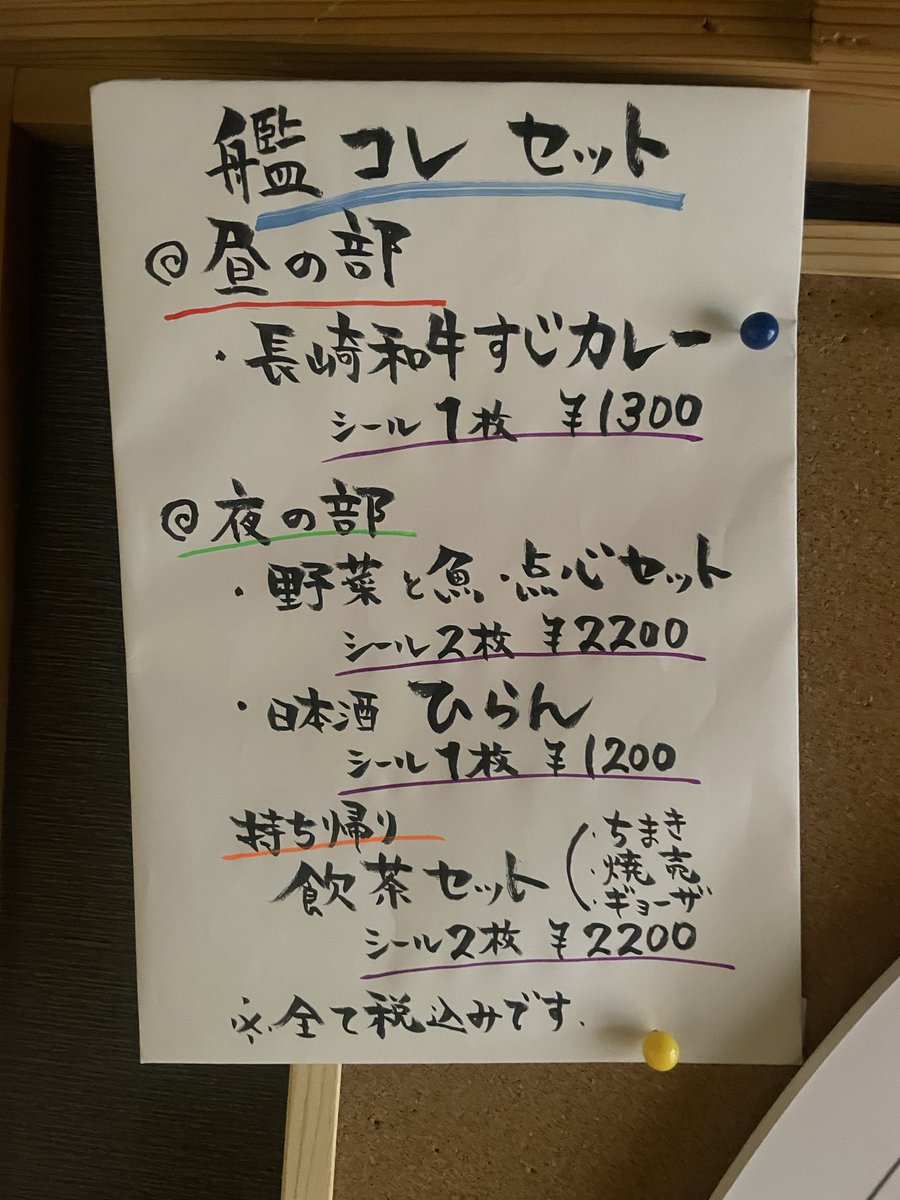 艦コレ セット
@昼の部
・長崎和牛すじカレー
シール1枚 ¥1300
@夜の部
・野菜と魚・点心セット
シール2枚 ¥2200
・日本酒 ひらん
シール1枚 ¥1200
持ち帰り
飲茶セット(・ちまき
・焼売
・ギョーザ
シール2枚 ¥2200
※全て税込みです.